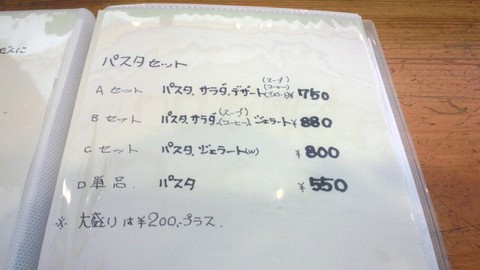 パスタセット
A セット パスタ、サラダ、デザート(スープ)(コーヒー) ¥750
B セット パスタ、サラダ、(スープ)(コーヒー)、ジェラート ¥880
C セット パスタ、ジェラート(W) ¥800
D 単品 パスタ ¥550
※ 大盛りは¥200プラス.